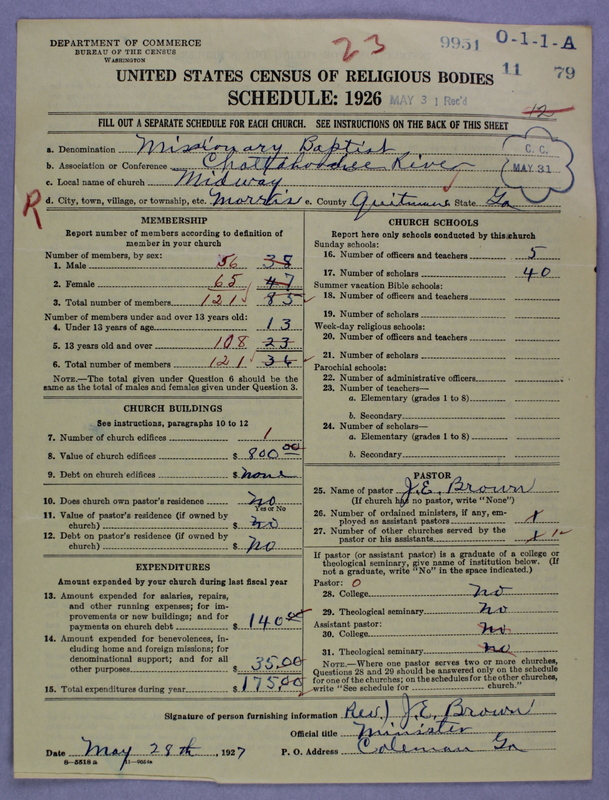 DEPARTMENT OF COMMERCE
BUREAU OF THE CENSUS
WASHINGTON
23
9951
O-1-1-A
11 79
UNITED STATES CENSUS OF RELIGIOUS BODIES
SCHEDULE: 1926
MAY 31 Rec'd
12
FILL OUT A SEPARATE SCHEDULE FOR EACH CHURCH. SEE INSTRUCTIONS ON THE BACK OF THIS SHEET
C. C.
MAY 31
a. Denomination Missionary Baptist
b. Association or Conference Chattahoochee River
c. Local name of church Midway
R
d. City, town, village, or township, etc. Morris e. County Quitman State Ga
MEMBERSHIP
Report number of members according to definition of
member in your church
Number of members, by sex:
1. Male 56 38
2. Female 65 47
3. Total number of members 121 85
Number of members under and over 13 years old:
4. Under 13 years of age 13
5. 13 years old and over 108 23
6. Total number of members 121 36
NOTE.—The total given under Question 6 should be the
same as the total of males and females given under Question 3.
CHURCH BUILDINGS
See instructions, paragraphs 10 to 12
7. Number of church edifices 1
8. Value of church edifices $ 800.00
9. Debt on church edifices $ none
10. Does church own pastor's residence No
Yes or No
11. Value of pastor's residence (if owned by
church) $ No
12. Debt on pastor's residence (if owned by
church) $ No
EXPENDITURES
Amount expended by your church during last fiscal year
13. Amount expended for salaries, repairs,
and other running expenses; for im-
provements or new buildings; and for
payments on church debt $ 140.00
14. Amount expended for benevolences, in-
cluding home and foreign missions; for
denominational support; and for all
other purposes $ 35.00
15. Total expenditures during year $ 175.00
CHURCH SCHOOLS
Report here only schools conducted by this church
Sunday schools:
16. Number of officers and teachers 5
17. Number of scholars 40
Summer vacation Bible schools:
18. Number of officers and teachers
19. Number of scholars
Week-day religious schools:
20. Number of officers and teachers
21. Number of scholars
Parochial schools:
22. Number of administrative officers
23. Number of teachers—
a. Elementary (grades 1 to 8)
b. Secondary
24. Number of scholars—
a. Elementary (grades 1 to 8)
b. Secondary
PASTOR
25. Name of pastor J.E. Brown
(If church has no pastor, write "None")
26. Number of ordained ministers, if any, em-
ployed as assistant pastors x
27. Number of other churches served by the
pastor or his assistants x
If pastor (or assistant pastor) is a graduate of a college or
theological seminary, give name of institution below. (If
not a graduate, write "No" in the space indicated.)
Pastor: 0
28. College no
29. Theological seminary no
Assistant pastor:
30. College no
31. Theological seminary no
NOTE.—Where one pastor serves two or more churches,
Questions 28 and 29 should be answered only on the schedule
for one of the churches; on the schedules for the other churches,
write "See schedule for church."
Signature of person furnishing information Rev.) J.E. Brown
Official title Minister
Date May 28th, 1927 P. O. Address Coleman Ga
8—5518 a 11—9654a